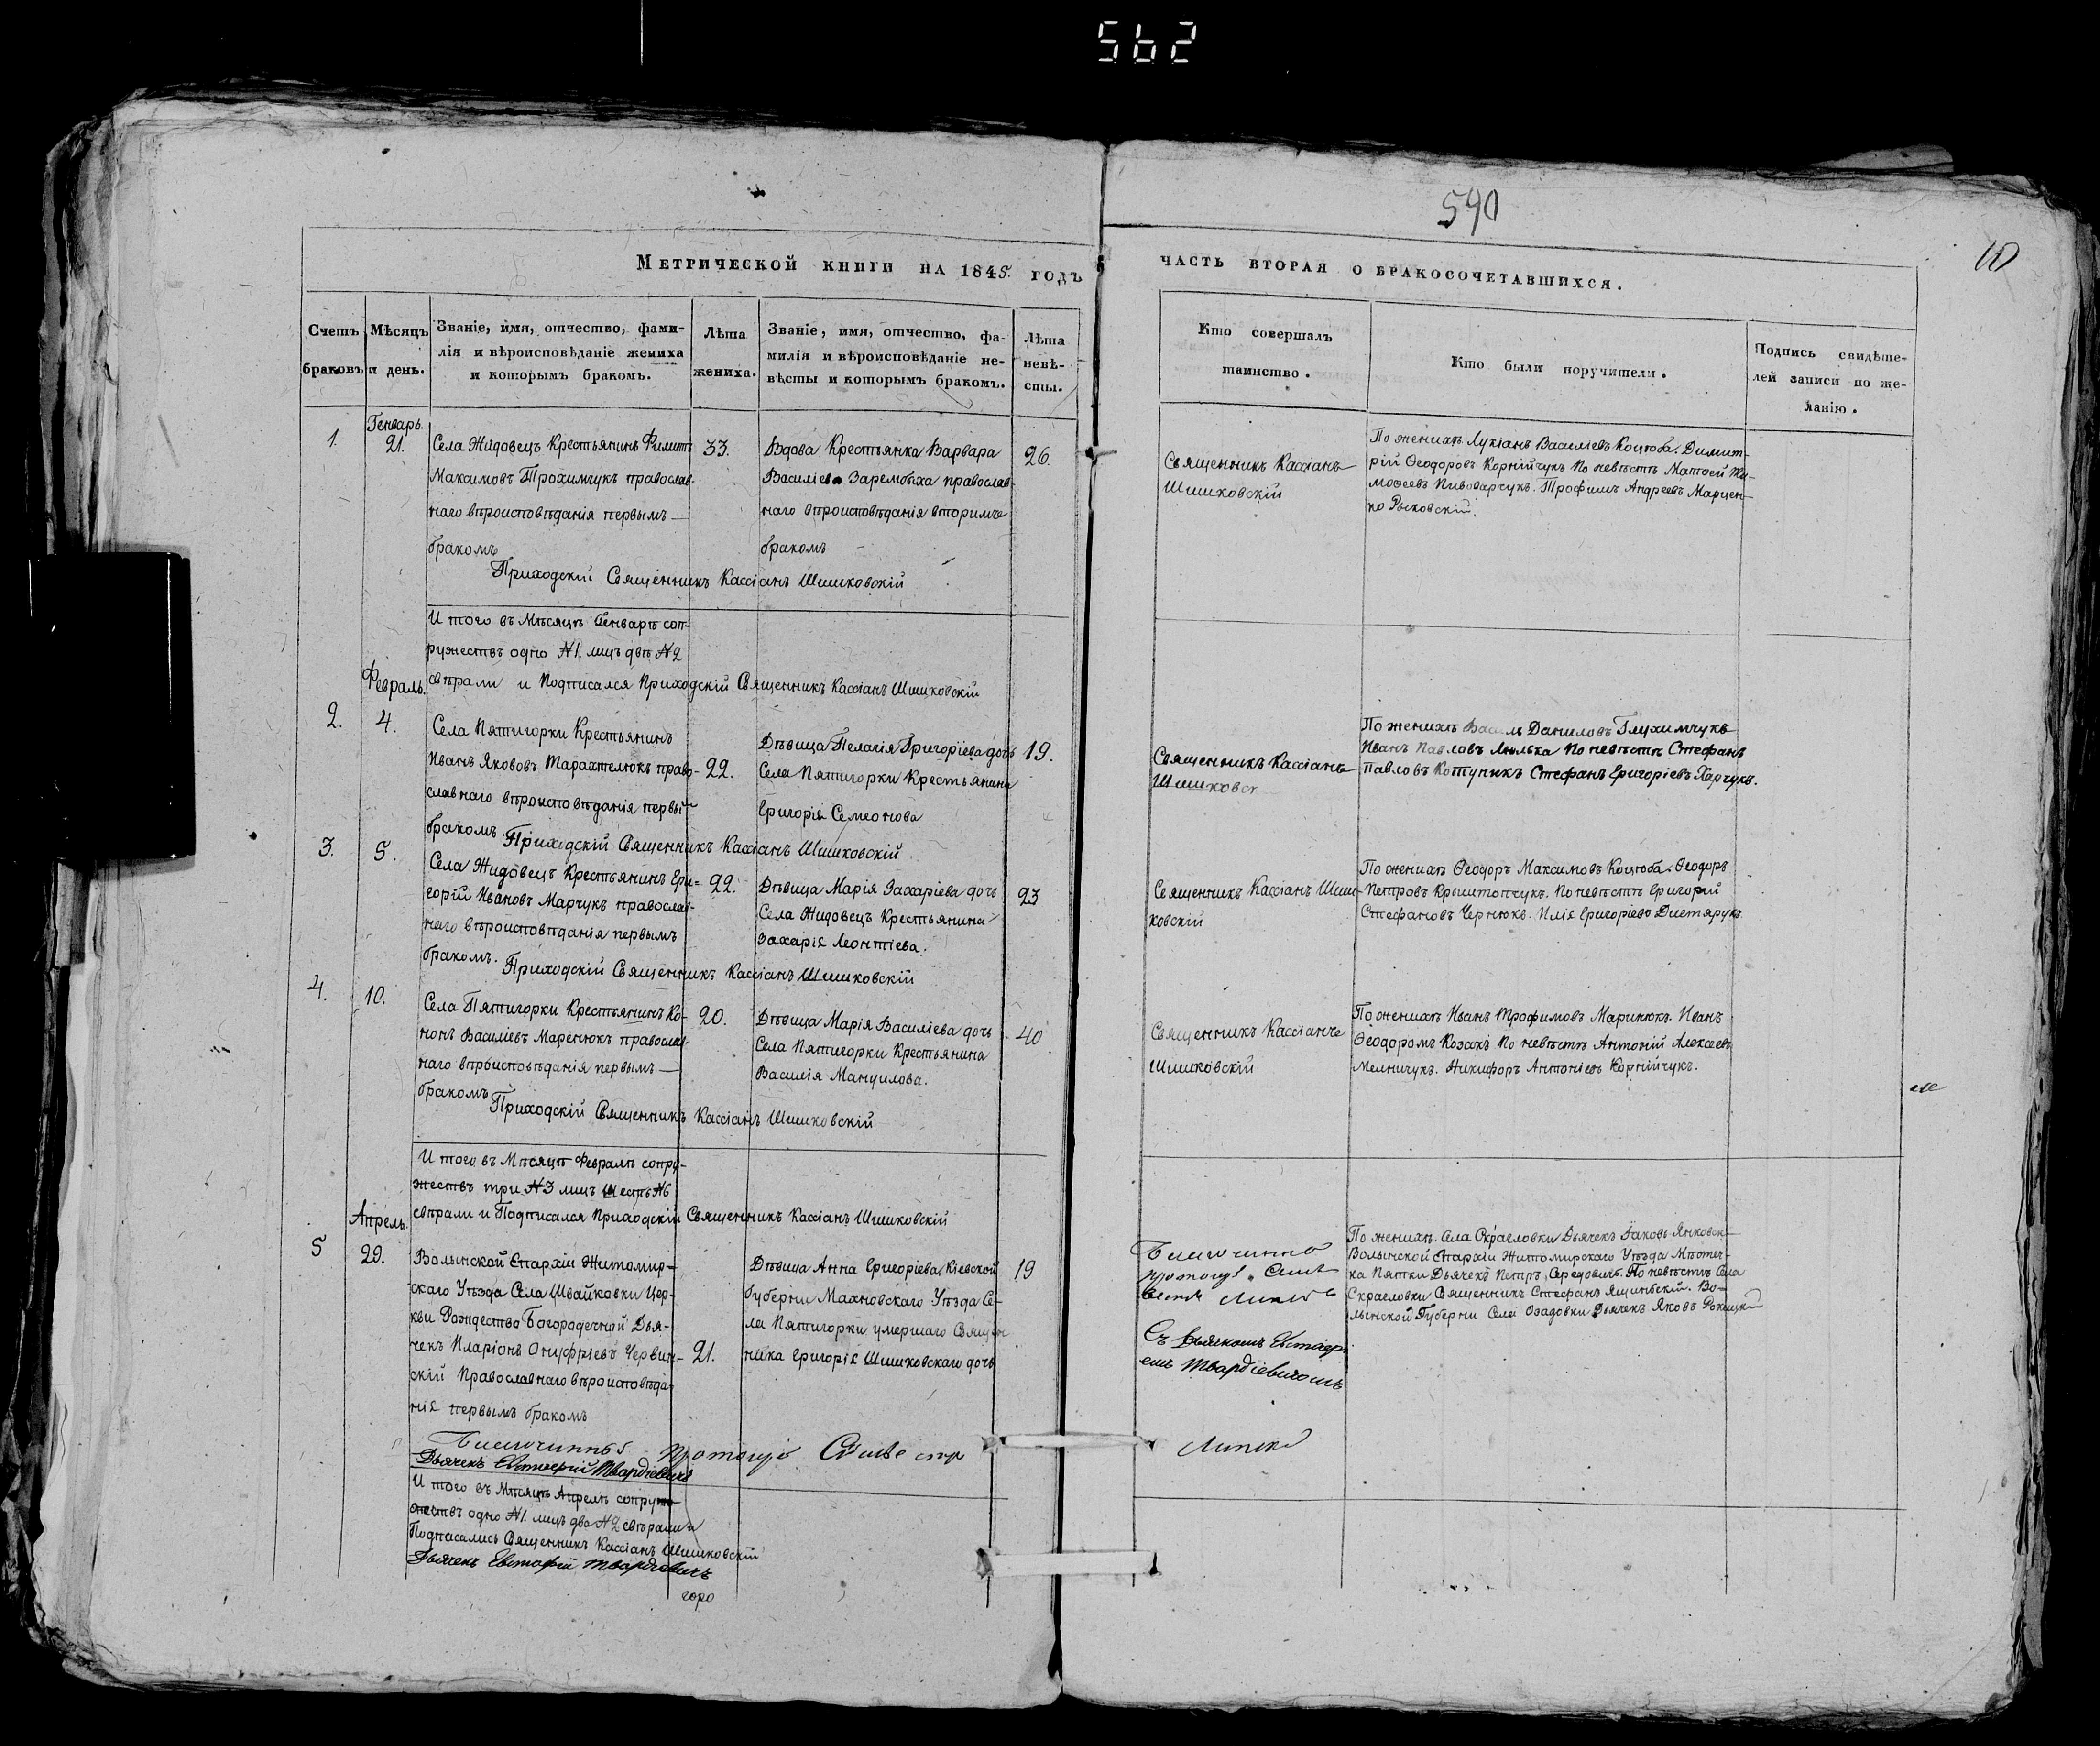 562
590
10
Метрической книги на 1845. годъ
часть вторая о бракосочетавшихся.
Счетъ браковъ
Мѣсяцъ и день.
Званіе, имя, отчество, фами-
лія и вѣроисповѣданіе жениха
и которымъ бракомъ.
Лѣта
жениха.
Званіе, имя, отчество, фа-
милія и вѣроисповѣданіе не-
вѣсты и которымъ бракомъ.
Лѣта
невѣ-
сты.
Кто совершалъ
таинство.
Кто были поручители.
Подпись свидѣте-
лей записи по же-
ланію.
Генварь.
1.
21.
Села Жидовецъ Крестьянинъ Филитъ
Максимовъ Трохимчукъ православ-
наго вѣроисповѣданія первымъ
бракомъ
33.
Вдова Крестьянка Варвара
Василіева Зарембиха православ-
наго вѣроисповѣданія вторимъ
бракомъ
26.
Священникъ Кассіанъ
Шишковскій
По женихѣ Лукіанъ Василіевъ Коцюба. Димит-
рій Ѳеодоровъ Корнійчукъ По невѣстѣ Матѳей Ти-
моѳеевъ Пивоварчукъ. Трофимъ Андреевъ Марцен-
ко Рыковскій.
Приходскій Священникъ Кассіанъ Шишковскій
И того въ Мѣсяцѣ Генварѣ соп-
ружествъ одно №1. лицъ двѣ №2
свѣрали и Подписался Приходскій Священникъ Кассіанъ Шишковскій
Февраль.
2.
4.
Села Пятигорки Крестьянинъ
Иванъ Якововъ Тарахтелюкъ право-
славнаго вѣроисповѣданія первый
бракомъ
22.
Дѣвица Пелагія Григоріева дочь
Села Пятигорки Крестьянина
Григорія Семеонова
19.
Священникъ Кассіанъ
Шишковск
По женихѣ Василь Даниловъ Глухимчукъ
Иванъ Павловъ Люлька По невѣстѣ Стефанъ
Павловъ Котуникъ Стефанъ Григоріевъ Харчукъ.
Приходскій Священникъ Кассіанъ Шишковскій
3.
5.
Села Жидовецъ Крестьянинъ Гри-
горій Ивановъ Марчукъ православ-
наго вѣроисповѣданія первымъ
бракомъ.
22.
Дѣвица Марія Захаріева дочь
Села Жидовецъ Крестьянина
Захарія Леонтіева.
23
Священникъ Кассіанъ Шиш-
ковскій
По женихѣ Ѳеодоръ Максимовъ Коцюба. Ѳеодоръ
Петровъ Крыштопчукъ. По невѣстѣ Григорій
Стефановъ Чернюкъ. Илія Григоріевъ Дистярукъ
Приходскій Священникъ Кассіанъ Шишковскій
4.
10.
Села Пятигорки Крестьянинъ Ко-
нонъ Василіевъ Маренюкъ православ-
наго вѣроисповѣданія первымъ
бракомъ
20.
Дѣвица Марія Василіева дочь
Села Пятигорки Крестьянина
Василія Мануилова.
40
Священникъ Кассіанъ
Шишковскій
По женихѣ Иванъ Трофимовъ Маринюкъ. Иванъ
Ѳеодоромъ Козакъ По невѣстѣ Антоній Алексеевъ
Мелничукъ. Никифоръ Антоніевъ Корнійчукъ.
Приходскій Священникъ Кассіанъ Шишковскій
И того въ Мѣсяцѣ Февралѣ супру-
жествъ три №3 лицъ шесть №6
свѣрали и Подписался Приходскій Священникъ Кассіанъ Шишковскій
Апрель.
5
29.
Волынской Епархіи Житомир-
скаго Уѣзда Села Швайковки Цер-
кви Рождества Богородечной Дья-
чекъ Иларіонъ Онуфріевъ Червин-
скій Православнаго вѣроисповѣда-
нія первымъ бракомъ
21.
Дѣвица Анна Григоріева, Кіевской
Губерни Махновскаго Уѣзда Се-
ла Пятигорки умершаго Священ
ника Григорія Шишковскаго дочь
19
Благочинный
протоіер Силь
вестр
Съ Дьячкомъ Евстафі
емъ Твардіевичомъ
По женихѣ. Села Скраеловки Дьячекъ Іаковъ Янковск
Волынской Епархіи Житомирскаго Уѣзда Мѣстеч-
ка Пятки Дьячекъ Петръ Середовичъ. По невѣстѣ Села
Скраеловки Священникъ Стефанъ Ящинскій. Во-
лынской Губерни Села Озадовки Дьячекъ Яковъ
Благочинный протоіер Сильвестр
Дьячекъ Евстафій Твардіевичъ
И того въ Мѣсяцѣ Апрелѣ сопру-
жествъ одно №1. лицъ два №2 свѣрали и
Подписались Священникъ Кассіанъ Шишковскій
Дьячекъ Евстафій Твардіевичъ